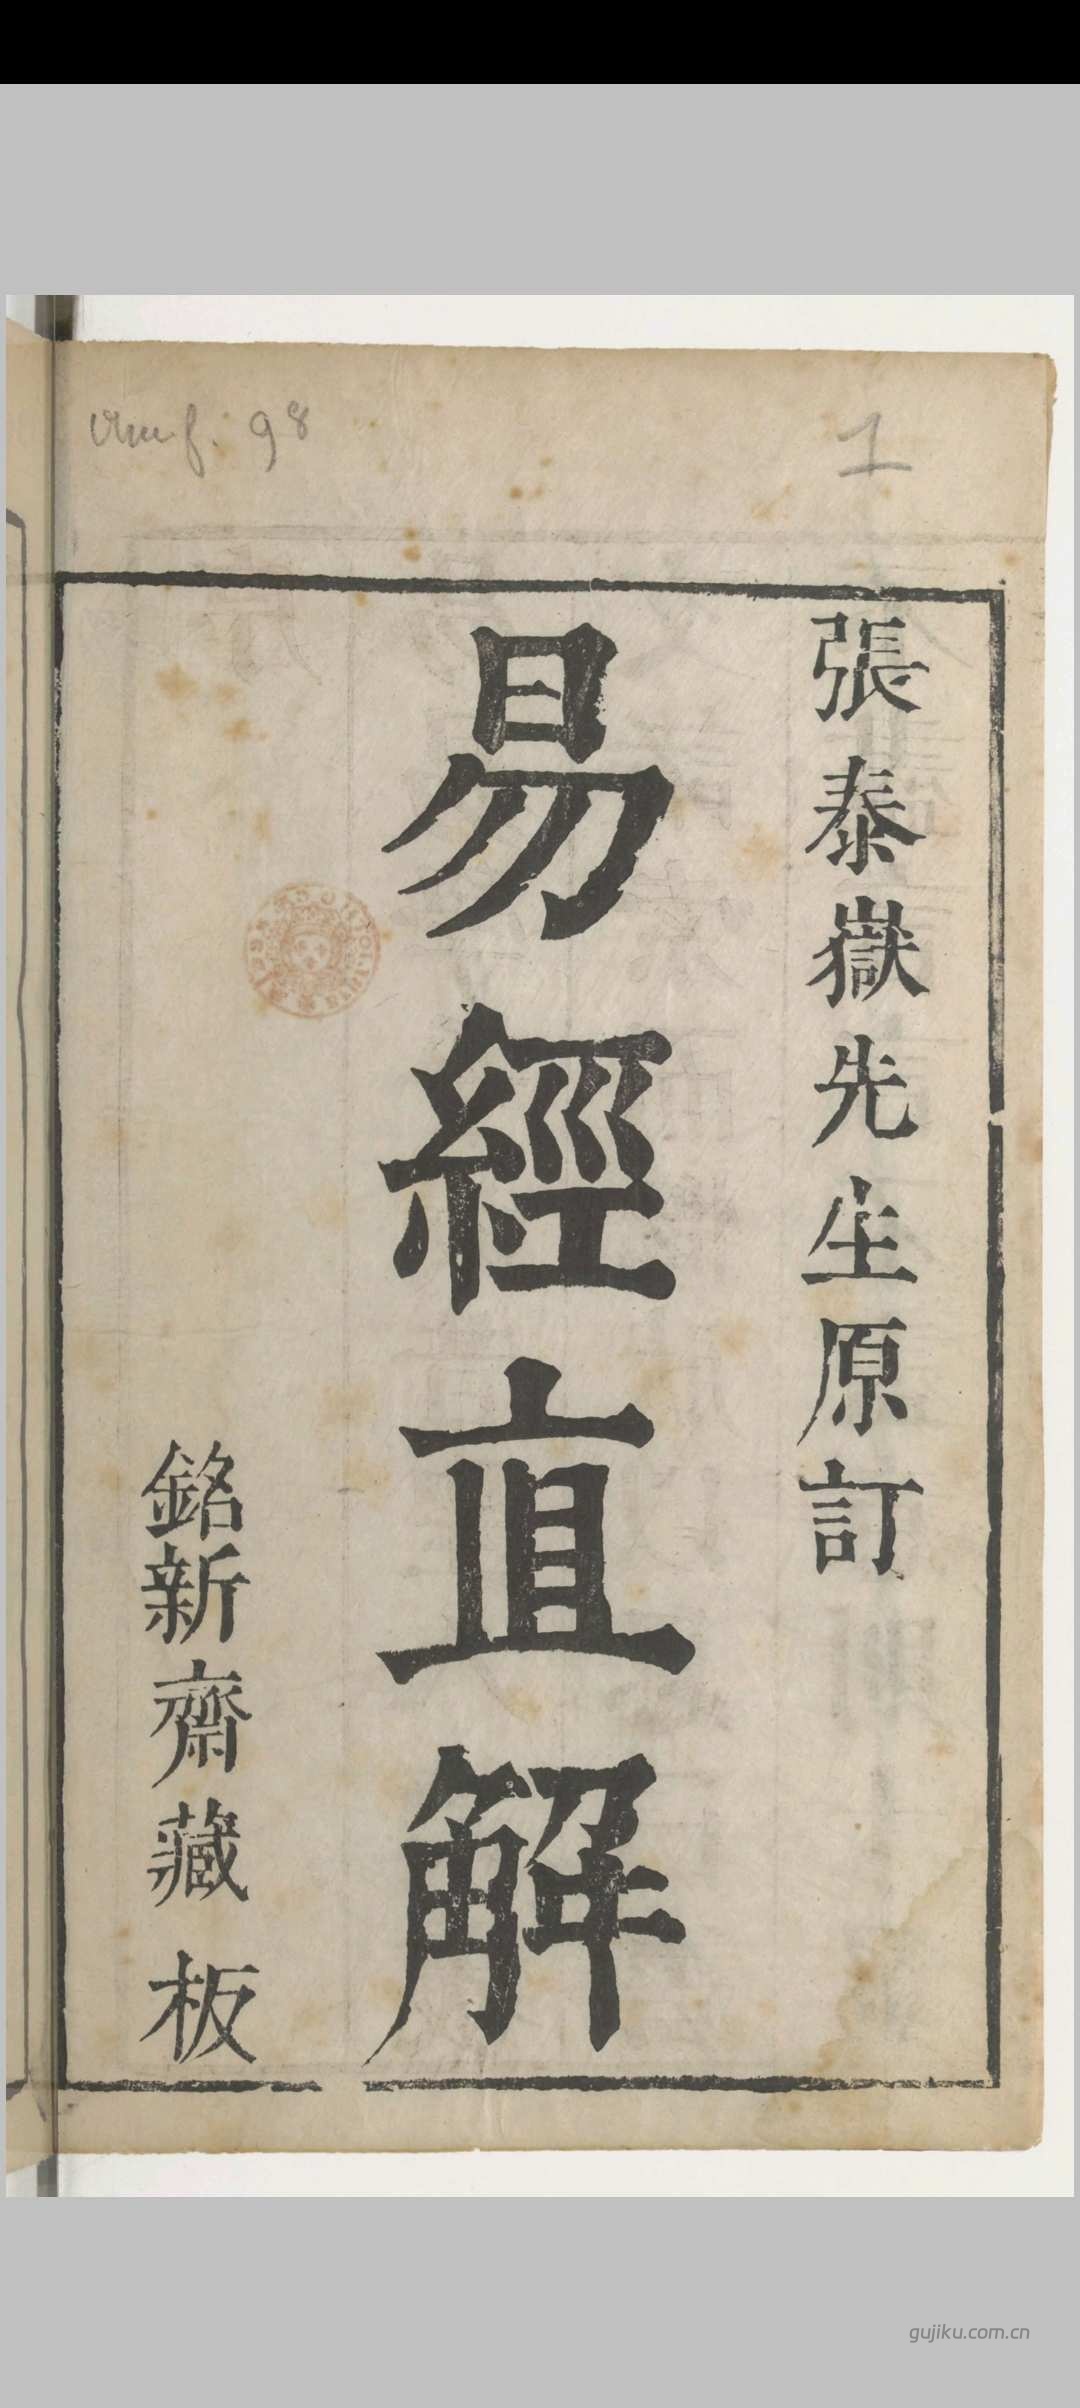 1
張泰嶽先生原訂
易經直解
銘新齋藏板
gujiku.com.cn